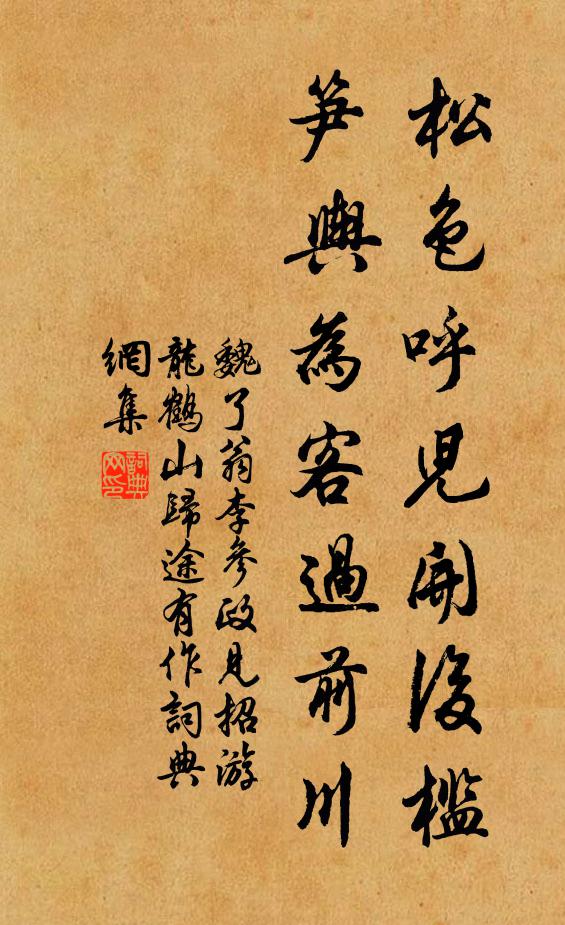 松色呼兒開後檻
笋輿為客過前川
魏了翁李參政見招游
龍鶴山歸途有作詞典
網集
詞典網印